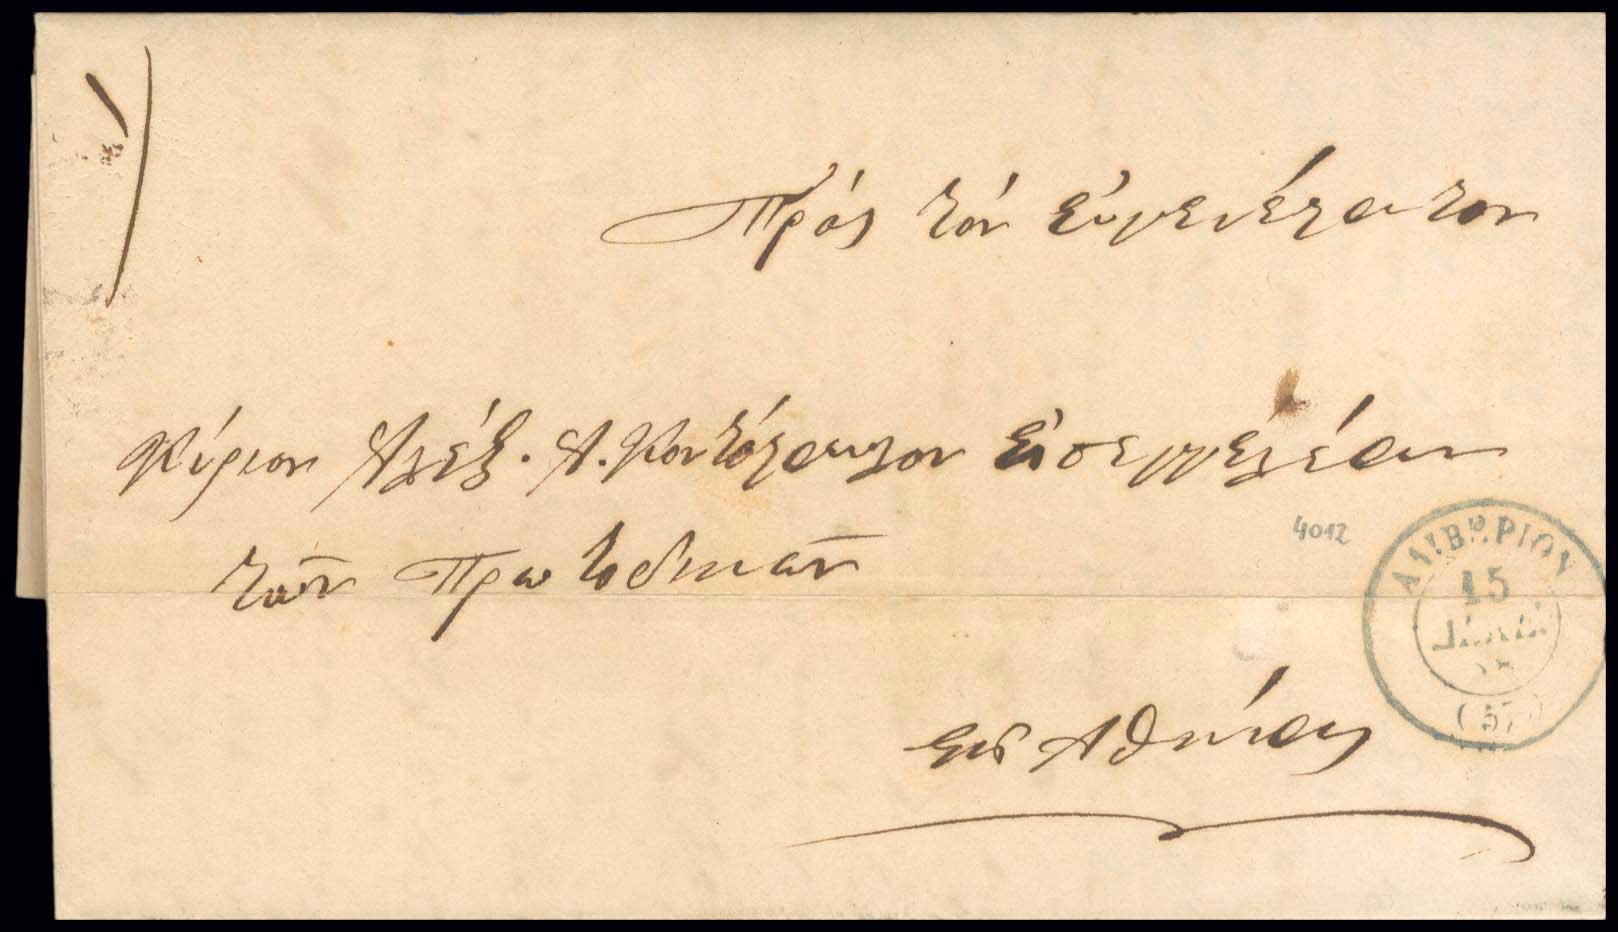 Πρὸς τὸν εὐγενέστατον
Κύριον Ἀλέξ. Α. Κοντόσταυλον Εἰσαγγελέαν
τῶν Πρωτοδικῶν
εἰς Ἀθήνας
4012
ΑΛΙΒΕΡΙΟΝ
15
(57)